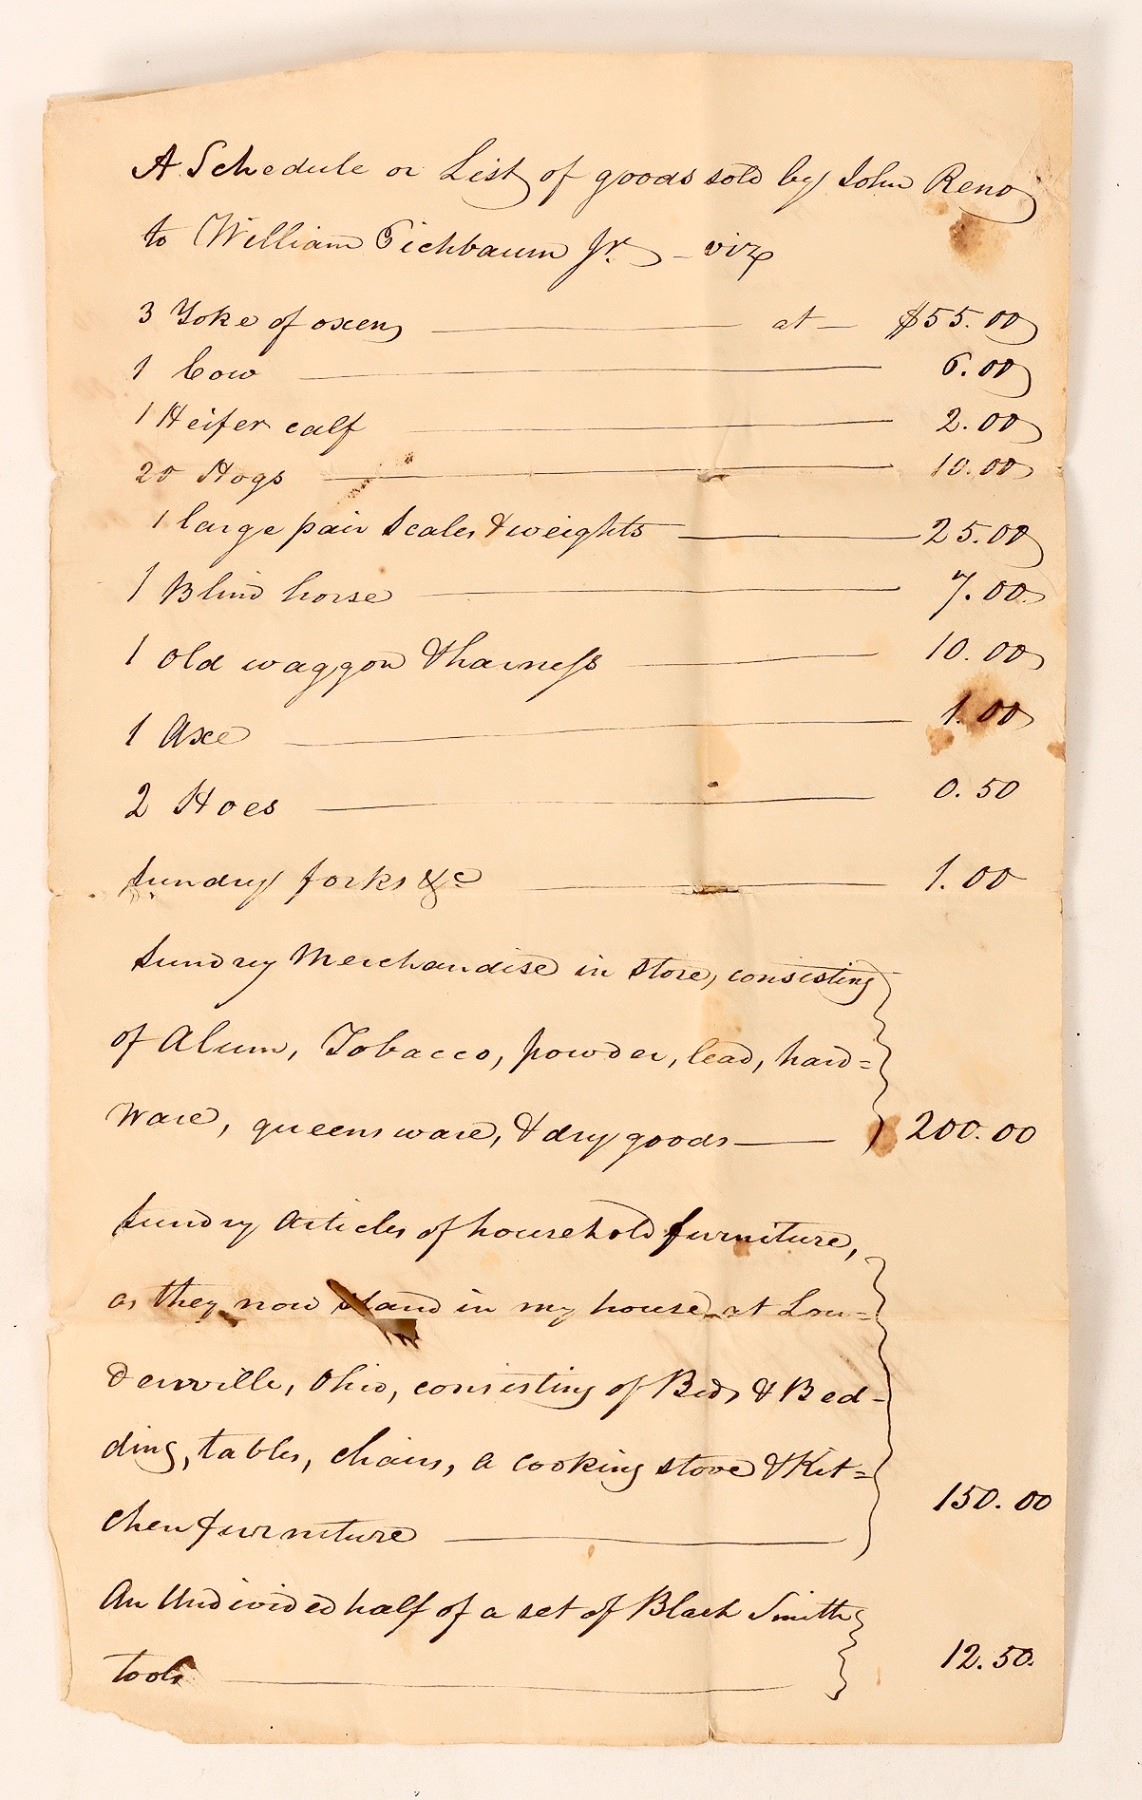 A Schedule or List of goods sold by John Reno
to William Eichbaum Jr. - viz
3 Yoke of oxen at $55.00
1 Cow 6.00
1 Heifer calf 2.00
20 Hogs 10.00
1 large pair Scales & weights 25.00
1 Blind horse 7.00
1 Old waggon & harness 10.00
1 Axe 1.00
2 Hoes 0.50
Sundry forks &c 1.00
Sundry Merchandise in Store, consisting
of Alum, Tobacco, powder, lead, hard=
ware, queensware, & dry goods 200.00
Sundry Articles of household furniture,
as they now stand in my house at Lou=
denville, Ohio, consisting of Beds & Bed=
ding, tables, chairs, a cooking stove & Kit=
chen furniture 150.00
An Undivided half of a set of Black Smith
tools 12.50